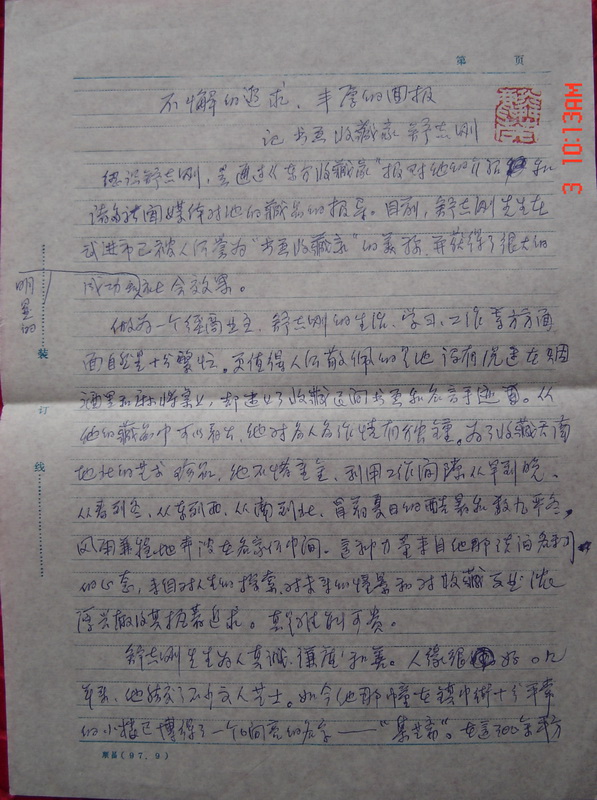 第 页
不懈的追求、丰厚的回报
记书画收藏家舒志刚
3 10:13AM
认识舒志刚,是通过《东方收藏家》报对他的介绍和
诸多新闻媒体对他的藏品的报导。目前,舒志刚先生在
武进市已被人们誉为“书画收藏家”的美称,并获得了很大的
成功和社会效果。
明显的
做为一个经商业主,舒志刚的生活、学习、工作等方方面
面自然是十分繁忙,更值得人们敬佩的是他没有沉迷在烟
酒里和麻将桌上,却迷上了收藏近间书画和名言手迹。从
他的藏品中可以看出,他对名人名作情有独锺。为了收藏天南
地北的艺术珍品,他不惜重金,利用工作间隙从早到晚、
从春到冬、从东到西、从南到北,冒着夏日的酷暑和数九严冬,
风雨兼程地奔波在名家们中间。这种力量来自他那淡泊名利
的心态,来自对人生的探索、对未来的憧憬和对收藏文艺浓
厚兴趣及其执着追求。真乃难能可贵。
舒志刚先生为人真诚、谦虚、和善。人缘很好。几
年来,他结交了不少文人艺士。如今他那幢在镇中街十分平素
的小楼已博得了一个响亮的名字——“集艺斋”。在这300余平方
装
订
线
顺昌(97.9)